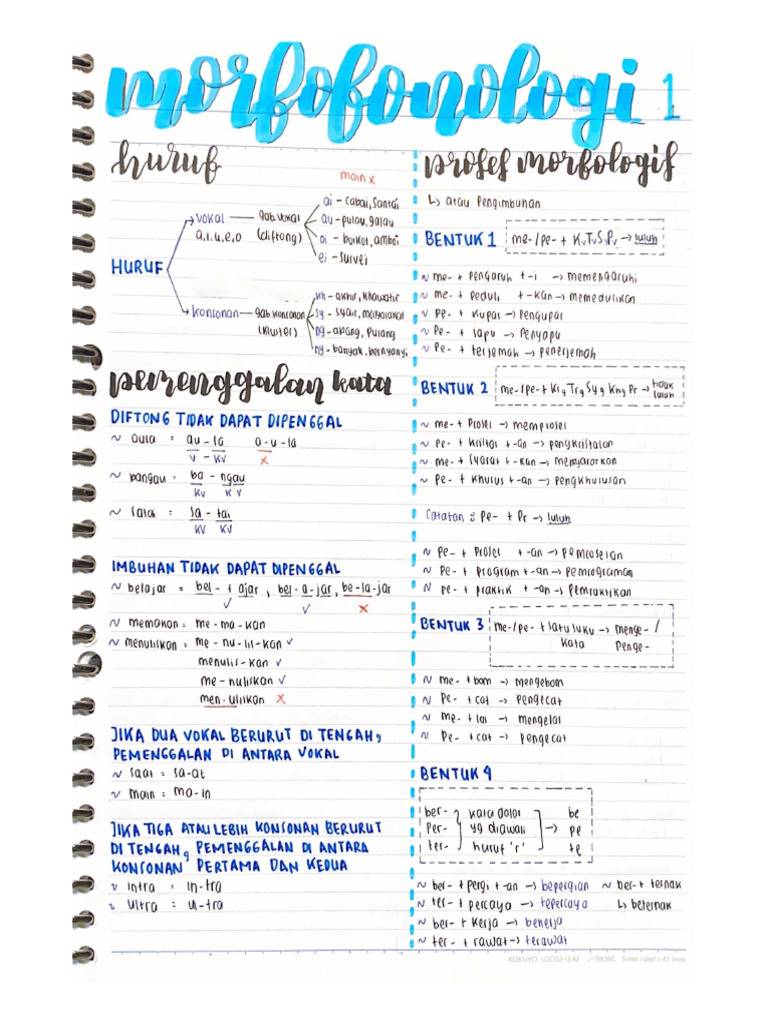 morfofonologi 1
huruf
main x
HURUF
vokal
a, i, u, e, o
gab. vokal
(diftong)
ai - cabai, santai
au - pulau, galau
oi - boikot, amboi
ei - survei
konsonan
gab konsonan
(kluster)
kh - akhir, khawatir
sy - syair, masyarakat
ng - abang, pulang
ny - banyak, bernyanyi
pemenggalan kata
DIFTONG TIDAK DAPAT DIPENGGAL
~ aula = au - la a - u - la
V - KV x
~ bangau = ba - ngau
KV KV
~ satai = sa - tai
KV KV
IMBUHAN TIDAK DAPAT DIPENGGAL
~ belajar = bel - + ajar, bel-a-jar, be-la-jar
✓ ✓ x
~ memakan = me-ma-kan
~ menuliskan = me-nu-lis-kan ✓
menulis-kan ✓
me-nuliskan ✓
men-uliskan x
JIKA DUA VOKAL BERURUT DI TENGAH,
PEMENGGALAN DI ANTARA VOKAL
~ saat = sa-at
~ main = ma-in
JIKA TIGA ATAU LEBIH KONSONAN BERURUT
DI TENGAH, PEMENGGALAN DI ANTARA
KONSONAN PERTAMA DAN KEDUA
~ intra = in-tra
~ ultra = ul-tra
proses morfologis
↳ atau Pengimbuhan
BENTUK 1
me-/pe- + KvTvSvPv → luluh
~ me- + pengaruh + -i → memengaruhi
~ me- + peduli + -kan → memedulikan
~ pe- + kupas → pengupas
~ pe- + sapu → penyapu
~ pe- + terjemah → penerjemah
BENTUK 2
me-/pe- + Kr, Tr, Sy, Kh, Pr → tidak
luluh
~ me- + proses → memproses
~ pe- + kristal + -an → pengkristalan
~ me- + syarat + -kan → mensyaratkan
~ pe- + khusus + -an → pengkhususan
Catatan : pe- + Pr → luluh
~ pe- + proses + -an → pemrosesan
~ pe- + program + -an → pemrograman
~ pe- + praktik + -an → pemraktikan
BENTUK 3
me-/pe- + satu suku → menge- /
kata Penge-
~ me- + bom → mengebom
~ pe- + cat → pengecat
~ me- + las → mengelas
~ pe- + cat → pengecat
BENTUK 4
ber- kata dasar be
per- yg diawali → pe
ter- huruf 'r' te
~ ber- + pergi + -an → bepergian ~ ber- + ternak
~ ter- + percaya → tepercaya ↳ beternak
~ ber- + kerja → bekerja
~ ter- + rawat → terawat
KOKUYO LOOSE-LEAF